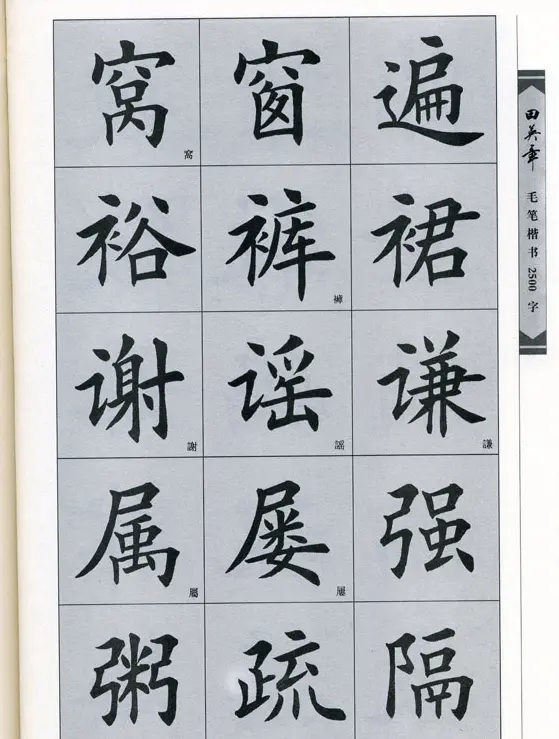 田英章 毛笔楷书2500字
遍 窗 窝 窩
裙 裤 褲 裕
谦 謙 谣 謡 谢 謝
强 屡 屢 属 屬
隔 疏 粥